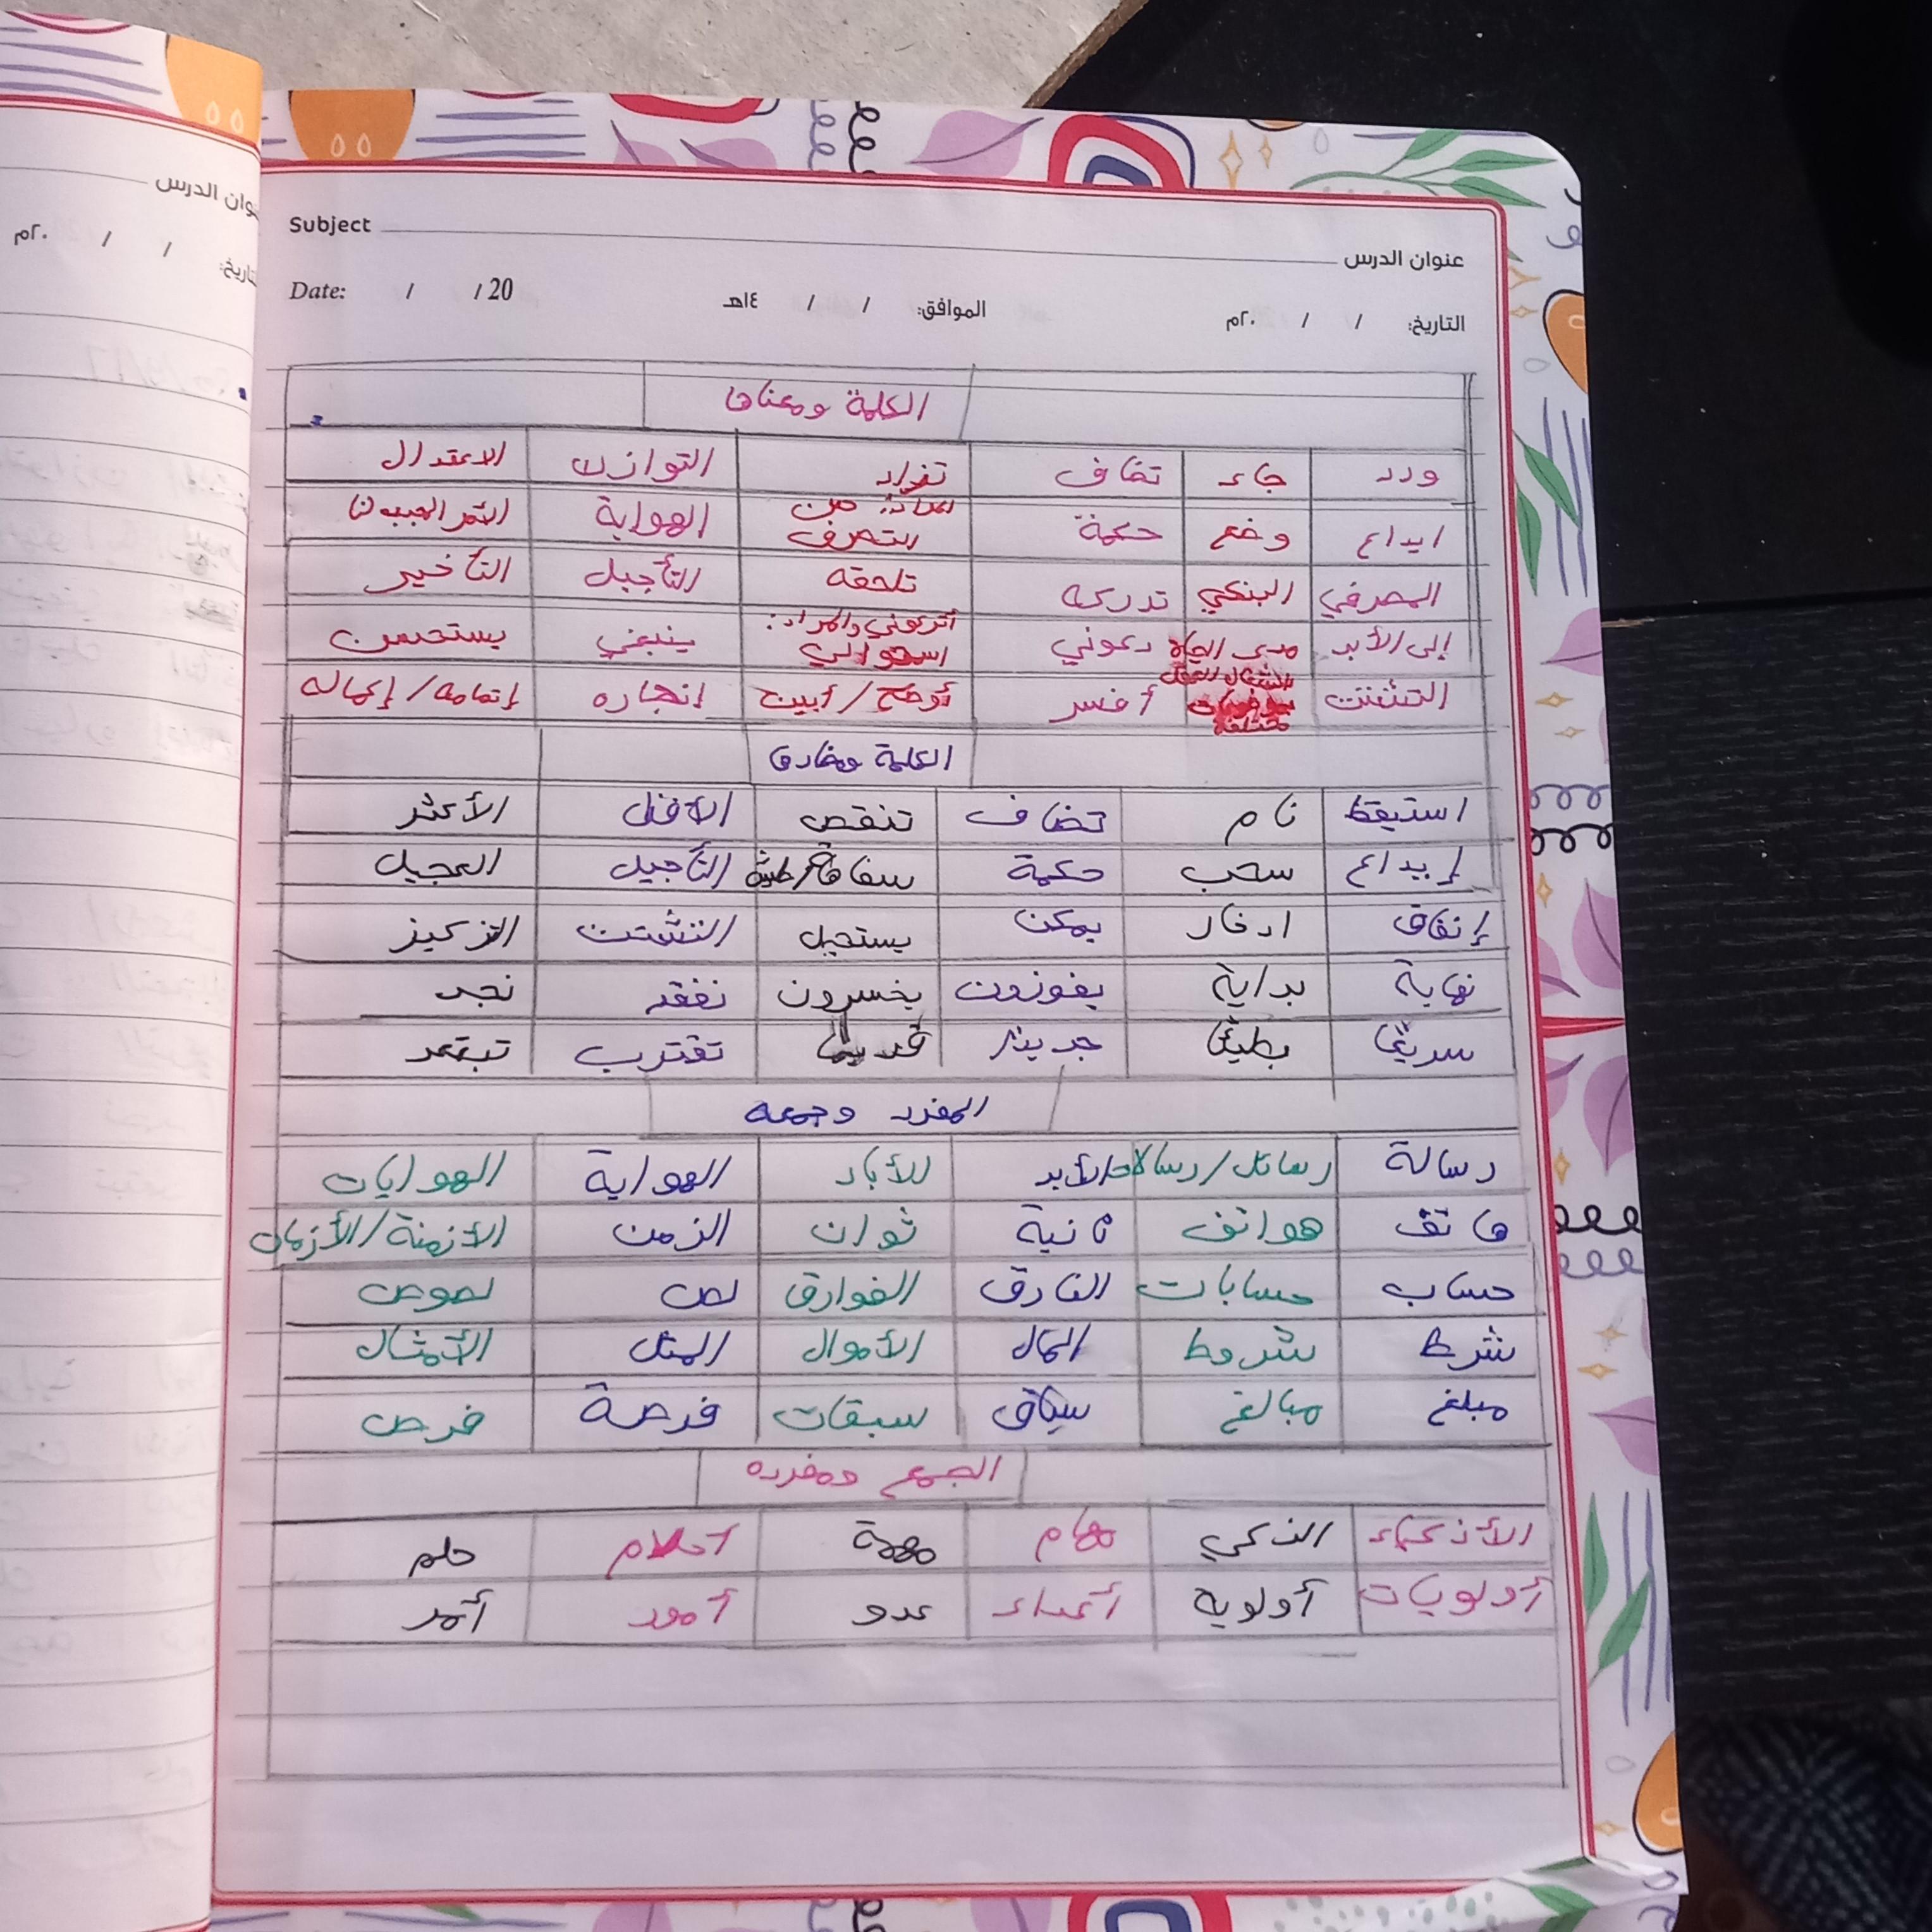 وان الدرس
اريخ: / / ٢٠م
Subject
عنوان الدرس
Date: / / 20
الموافق: / / ١٤هـ
التاريخ: / / ٢٠م
الكلمة ومعناها
ورد جاء تضاف تزاد التوازن الاعتدال
ايداع وضع حكمة حسن التصرف الهواية
المصرفي البنكي تدركه تلحقه التأجيل التأخير
إلى الأبد مدى الحياة دعوني أتركوني والمراد: اسمحوا لي ينبغي يستحسن
التشتت أفسر أوضح/أبين إنجازه إتمامه/إكماله
الكلمة ومضادها
استيقظ نام تضاف تنقص الأقل الأكثر
إيداع سحب حكمة التأجيل العجيل
إنفاق ادخار يمكن يستحيل التشتت التركيز
نهاية بداية يفوزون يخسرون نفقد نجد
سريعًا بطيئًا جديدًا قديمًا تقترب تبتعد
المفرد وجمعه
رسالة رسائل/رسالات الأبد للأباد الهواية الهوايات
هاتف هواتف ثانية ثوان الزمن الأزمنة/الأزمان
حساب حسابات الفارق الفوارق لص لصوص
شرط شروط المال الأموال المثل الأمثال
مبلغ مبالغ سباق سبقات فرصة فرص
الجمع ومفرده
الأذكياء الذكي مهام مهمة أحلام حلم
أولويات أولوية أعداء عدو أمور أمر